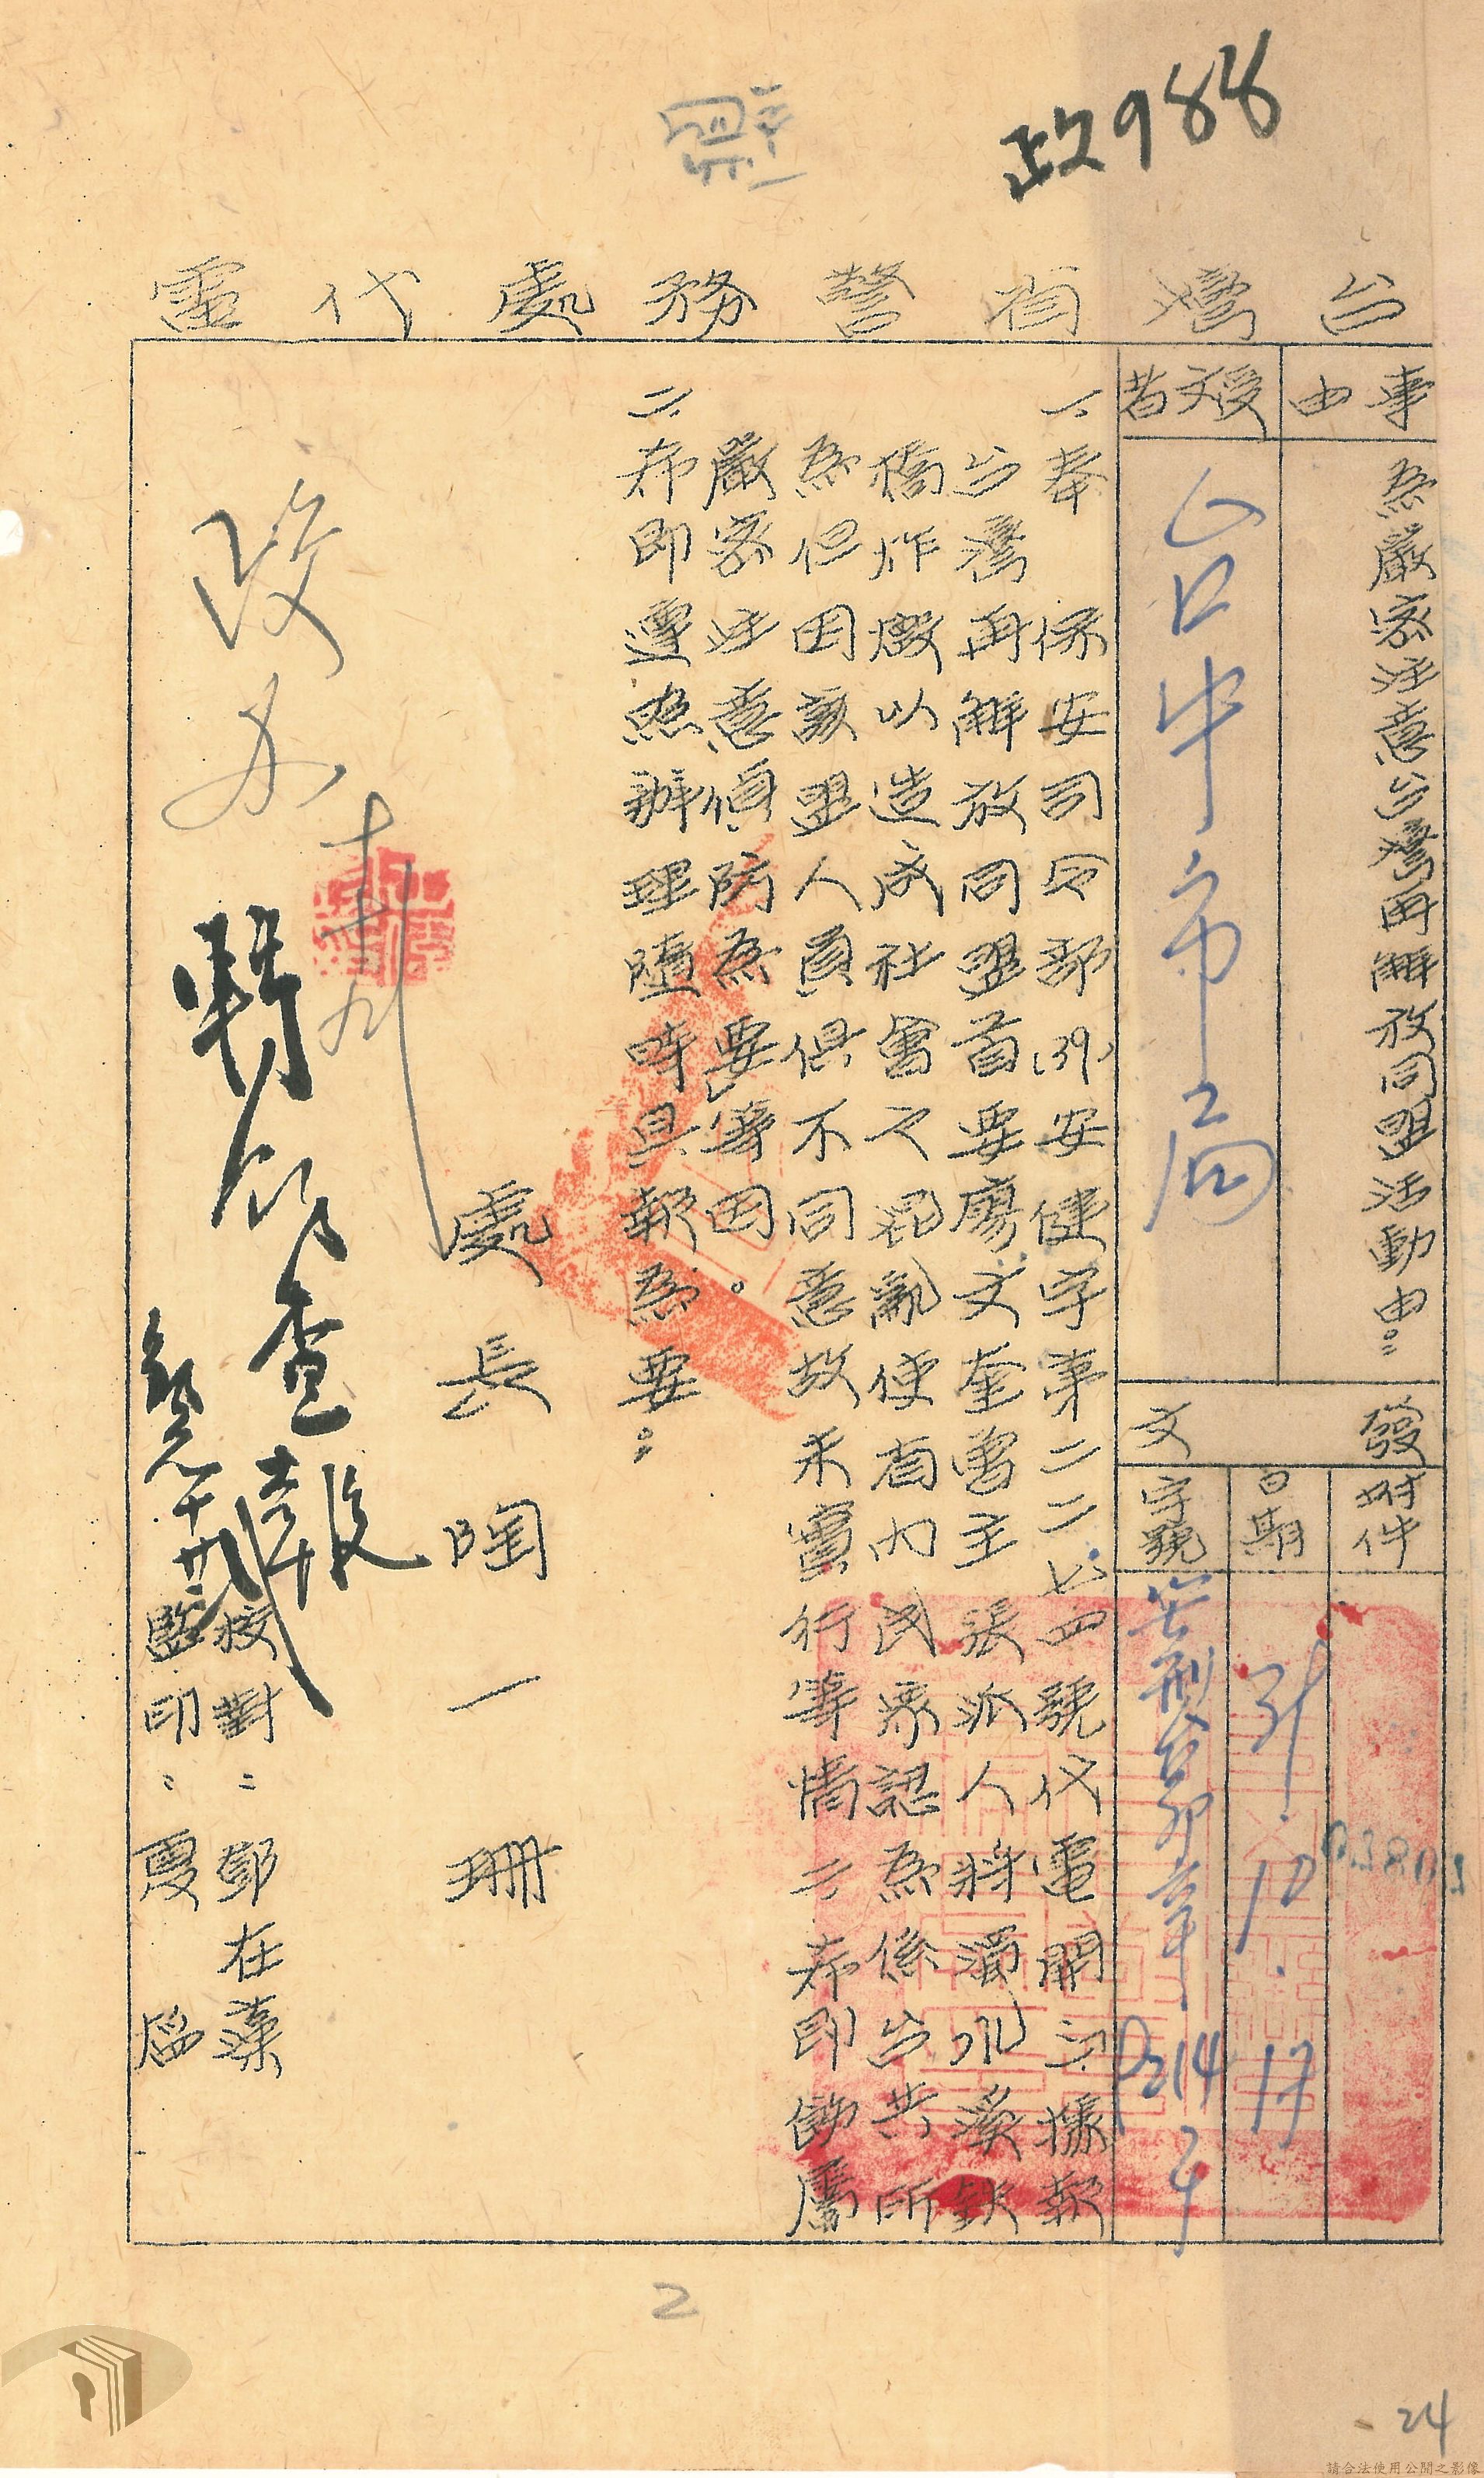 政988
台灣省警務處代電
事由
為嚴密注意台灣再解放同盟活動由。
受文者
台中市二局
發文
附件
日期
39.10.17
字號
一、奉 保安司令部(39)安健字第二二七四號代電開「一、據報
台灣再解放同盟首要廖文奎曾主張派人將濁水溪鉄
橋炸燬以造成社會之混亂使省內民眾認為係台共所
為但因該盟人員俱不同意故未實行等情二、希即飭屬
嚴密注意偵防為要」等因。
二、希即遵照辦理隨時具報為要。
處長陶一珊
校對：鄧在藻
監印：夏
查報
2
24
請合法使用公開之影像